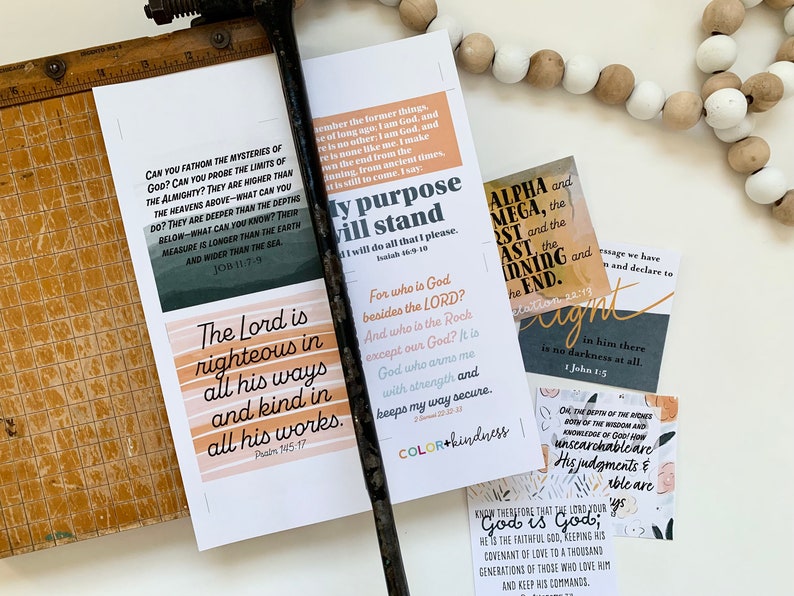 CHICAGO
INGENTO NO. 3
12
13
14
15
CAN YOU FATHOM THE MYSTERIES OF
GOD? CAN YOU PROBE THE LIMITS OF
THE ALMIGHTY? THEY ARE HIGHER THAN
THE HEAVENS ABOVE—WHAT CAN YOU
DO? THEY ARE DEEPER THAN THE DEPTHS
BELOW—WHAT CAN YOU KNOW? THEIR
MEASURE IS LONGER THAN THE EARTH
AND WIDER THAN THE SEA.
JOB 11:7-9
The Lord is
righteous in
all his ways
and kind in
all his works.
Psalm 145:17
member the former things,
se of long ago; I am God, and
re is no other; I am God, and
re is none like me. I make
own the end from the
inning, from ancient times,
at is still to come. I say:
My purpose
will stand
d I will do all that I please.
Isaiah 46:9-10
For who is God
besides the LORD?
And who is the Rock
except our God? It is
God who arms me
with strength and
keeps my way secure.
2 Samuel 22:32-33
COLOR+kindness
ALPHA and
MEGA, the
RST and the
AST, the
INNING and
the END.
elation 22:13
essage we have
m and declare to
light
in him there
is no darkness at all.
1 John 1:5
OH, THE DEPTH OF THE RICHES
BOTH OF THE WISDOM AND
KNOWLEDGE OF GOD! HOW
unsearchable are
His judgments &
able are
ays
KNOW THEREFORE THAT THE LORD YOUR
God is God;
HE IS THE FAITHFUL GOD, KEEPING HIS
COVENANT OF LOVE TO A THOUSAND
GENERATIONS OF THOSE WHO LOVE HIM
AND KEEP HIS COMMANDS.